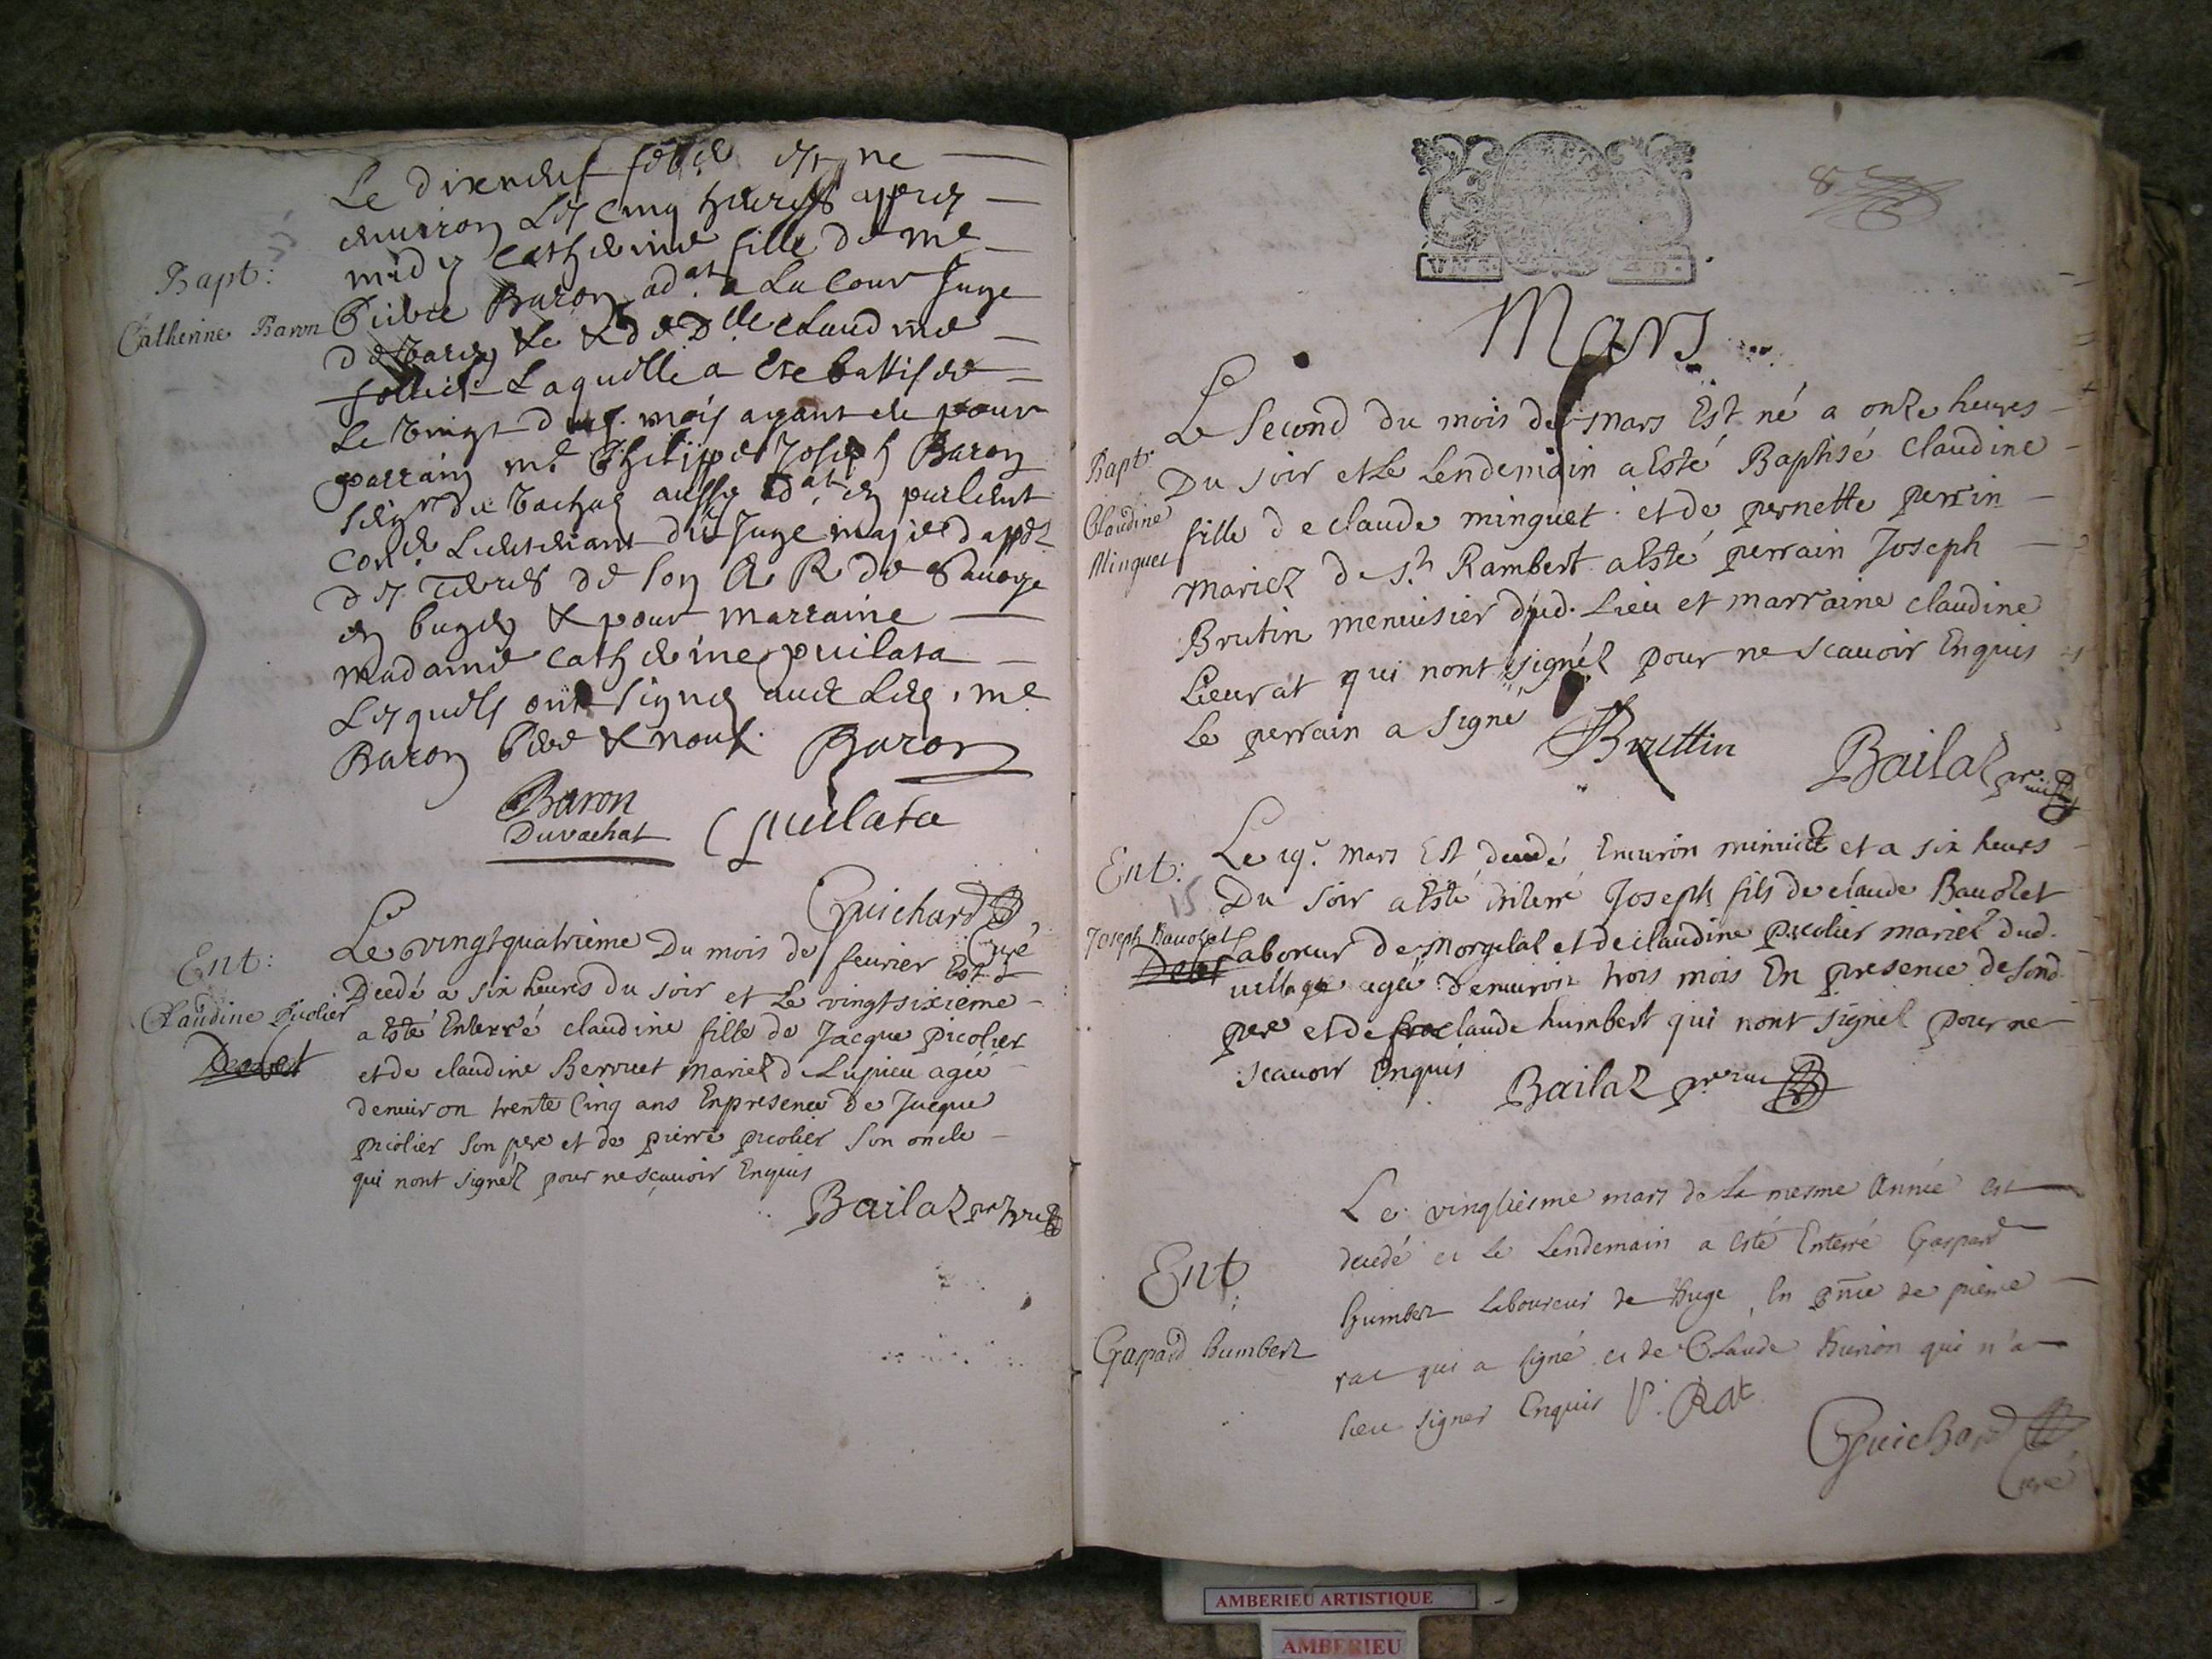 Bapt:
Catherine Baron
Le dixneuf est ne
environ les cinq heures apres
midy Catherine fille de me
Baron adat a La Cour Juge
Claudine
Laquelle a ete battisee
Le vingt mois ayant ete pour
parrain me Philippe Joseph Baron
aussy adat en parlem̃t
Lieutenant du Juge maje d'appel
des Terres de son A R de Savoye
en bugey & pour marraine
madame Catherine puilata
Lesquels ont signes avec Led. me
Baron pere & nous. Baron
Baron
Duvachat
Puilata
Guichard
Curé
Ent:
Claudine picolier
Le vingtquatrieme Du mois de feurier Est
Decedé a six heures du soir et Le vingtsixieme
a Esté Enterré claudine fille de Jacque picolier
et de claudine Berruet mariez de Lupieu agée
denuiron trente Cinq ans En presence De Jacque
picolier son pere et de pierre picolier son oncle
qui nont signéz pour ne sçauoir Enquis
Bailaz
8
Mars
Bapt:
Claudine
Minguet
Le Second du mois de mars Est né a onze heures
Du soir et Le Lendemain a Esté Baptisé Claudine
fille de claude minguet et de pernette perrin
mariez de St Rambert a Esté perrain Joseph
Brutin menuisier dud. Lieu et marraine claudine
Lieurat qui nont signéz pour ne scauoir Enquis
Le perrain a signé
Bruttin
Bailaz
Ent:
15
Joseph Bauozet
Le 19e mars Est decedé Enuiron minuict et a six heures
Du soir a Esté Enterré Joseph fils de claude Bauozet
Laboreur de Morgelaz et de claudine picolier mariez dud.
uillage agée denuiron trois mois En presence de sond.
pere et de claude humbert qui nont signéz pour ne
scauoir Enquis
Bailaz
Ent:
Gaspard humbert
Le vingtiesme mars de la mesme Année est
decedé et le Lendemain a esté Enterré Gaspard
humbert Laboureur de , En pñce de pierre
rat qui a signé et de Claude qui n'a
sceu signer Enquis P. Rat
Guichard
Curé
AMBERIEU ARTISTIQUE
AMBERIEU